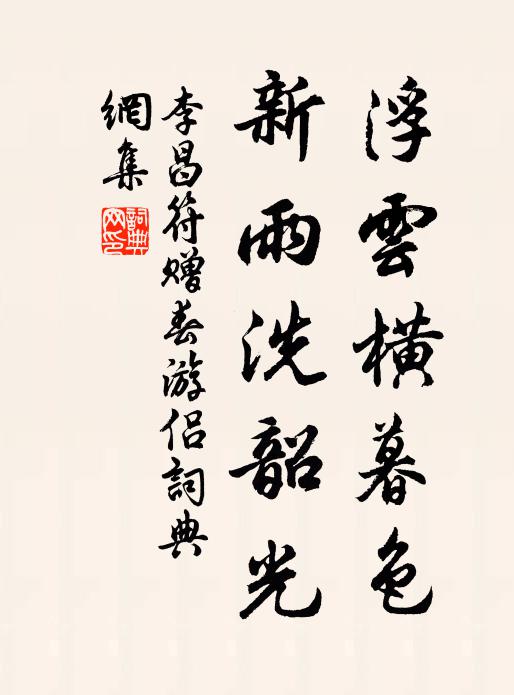 浮雲橫暮色
新雨洗韶光
李昌符贈春游侶詞典
網集
詞典網印